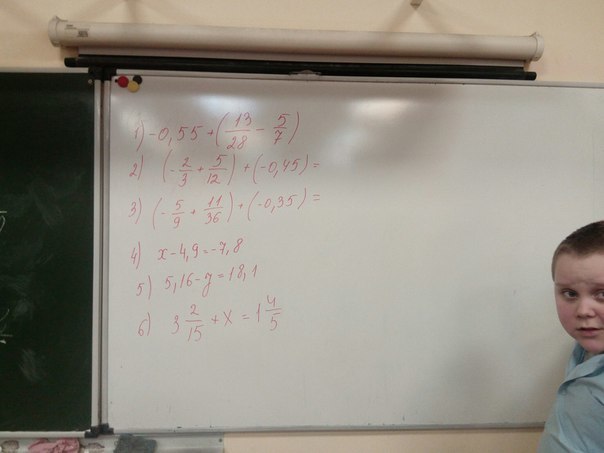 1) -0,55+(13/28 - 5/7)
2) (-2/3 + 5/12) + (-0,45) =
3) (-5/9 + 11/36) + (-0,35) =
4) x-4,9=-7,8
5) 5,16-y=18,1
6) 3 2/15 + x = 1 4/5